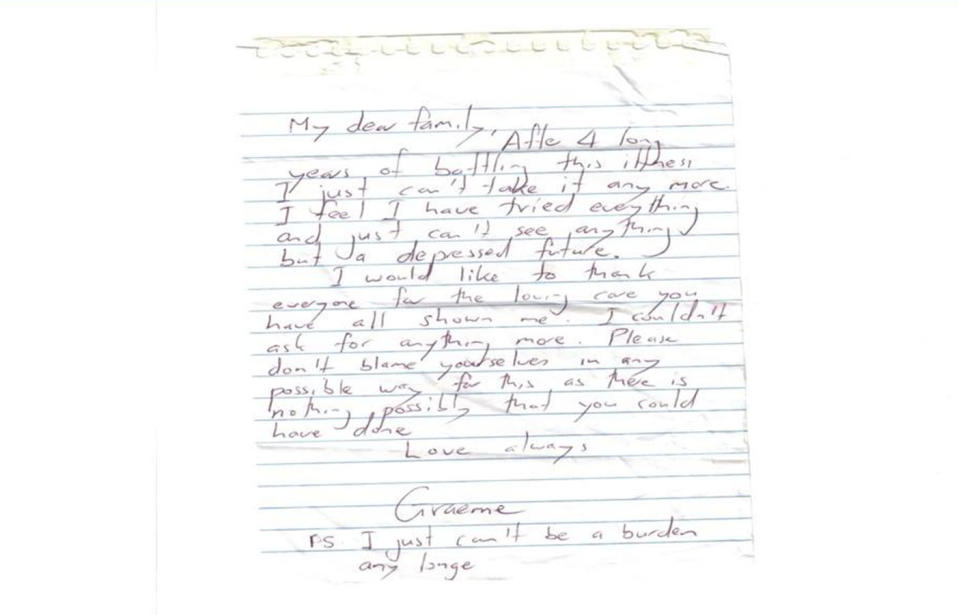 My dear family,
Afte 4 long
years of battling this illness
I just can't take it any more.
I feel I have tried eveything
and just can't see anything
but a depressed future.
I would like to thank
everyone for the loving care you
have all shown me. I couldn't
ask for anything more. Please
don't blame yourselves in any
possible way for this, as there is
nothing possibly that you could
have done
Love always
Graeme
PS. I just can't be a burden
any longe